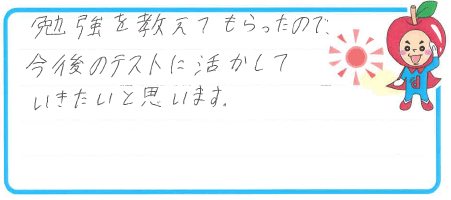 勉強を教えてもらったので、
今後のテストに活かして
いきたいと思います。